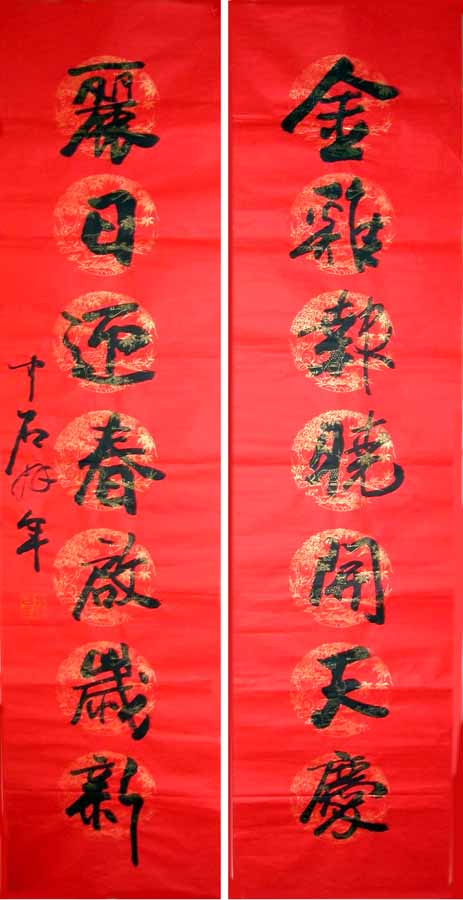 金雞報曉開天慶
麗日迎春啟歲新
中石拜年